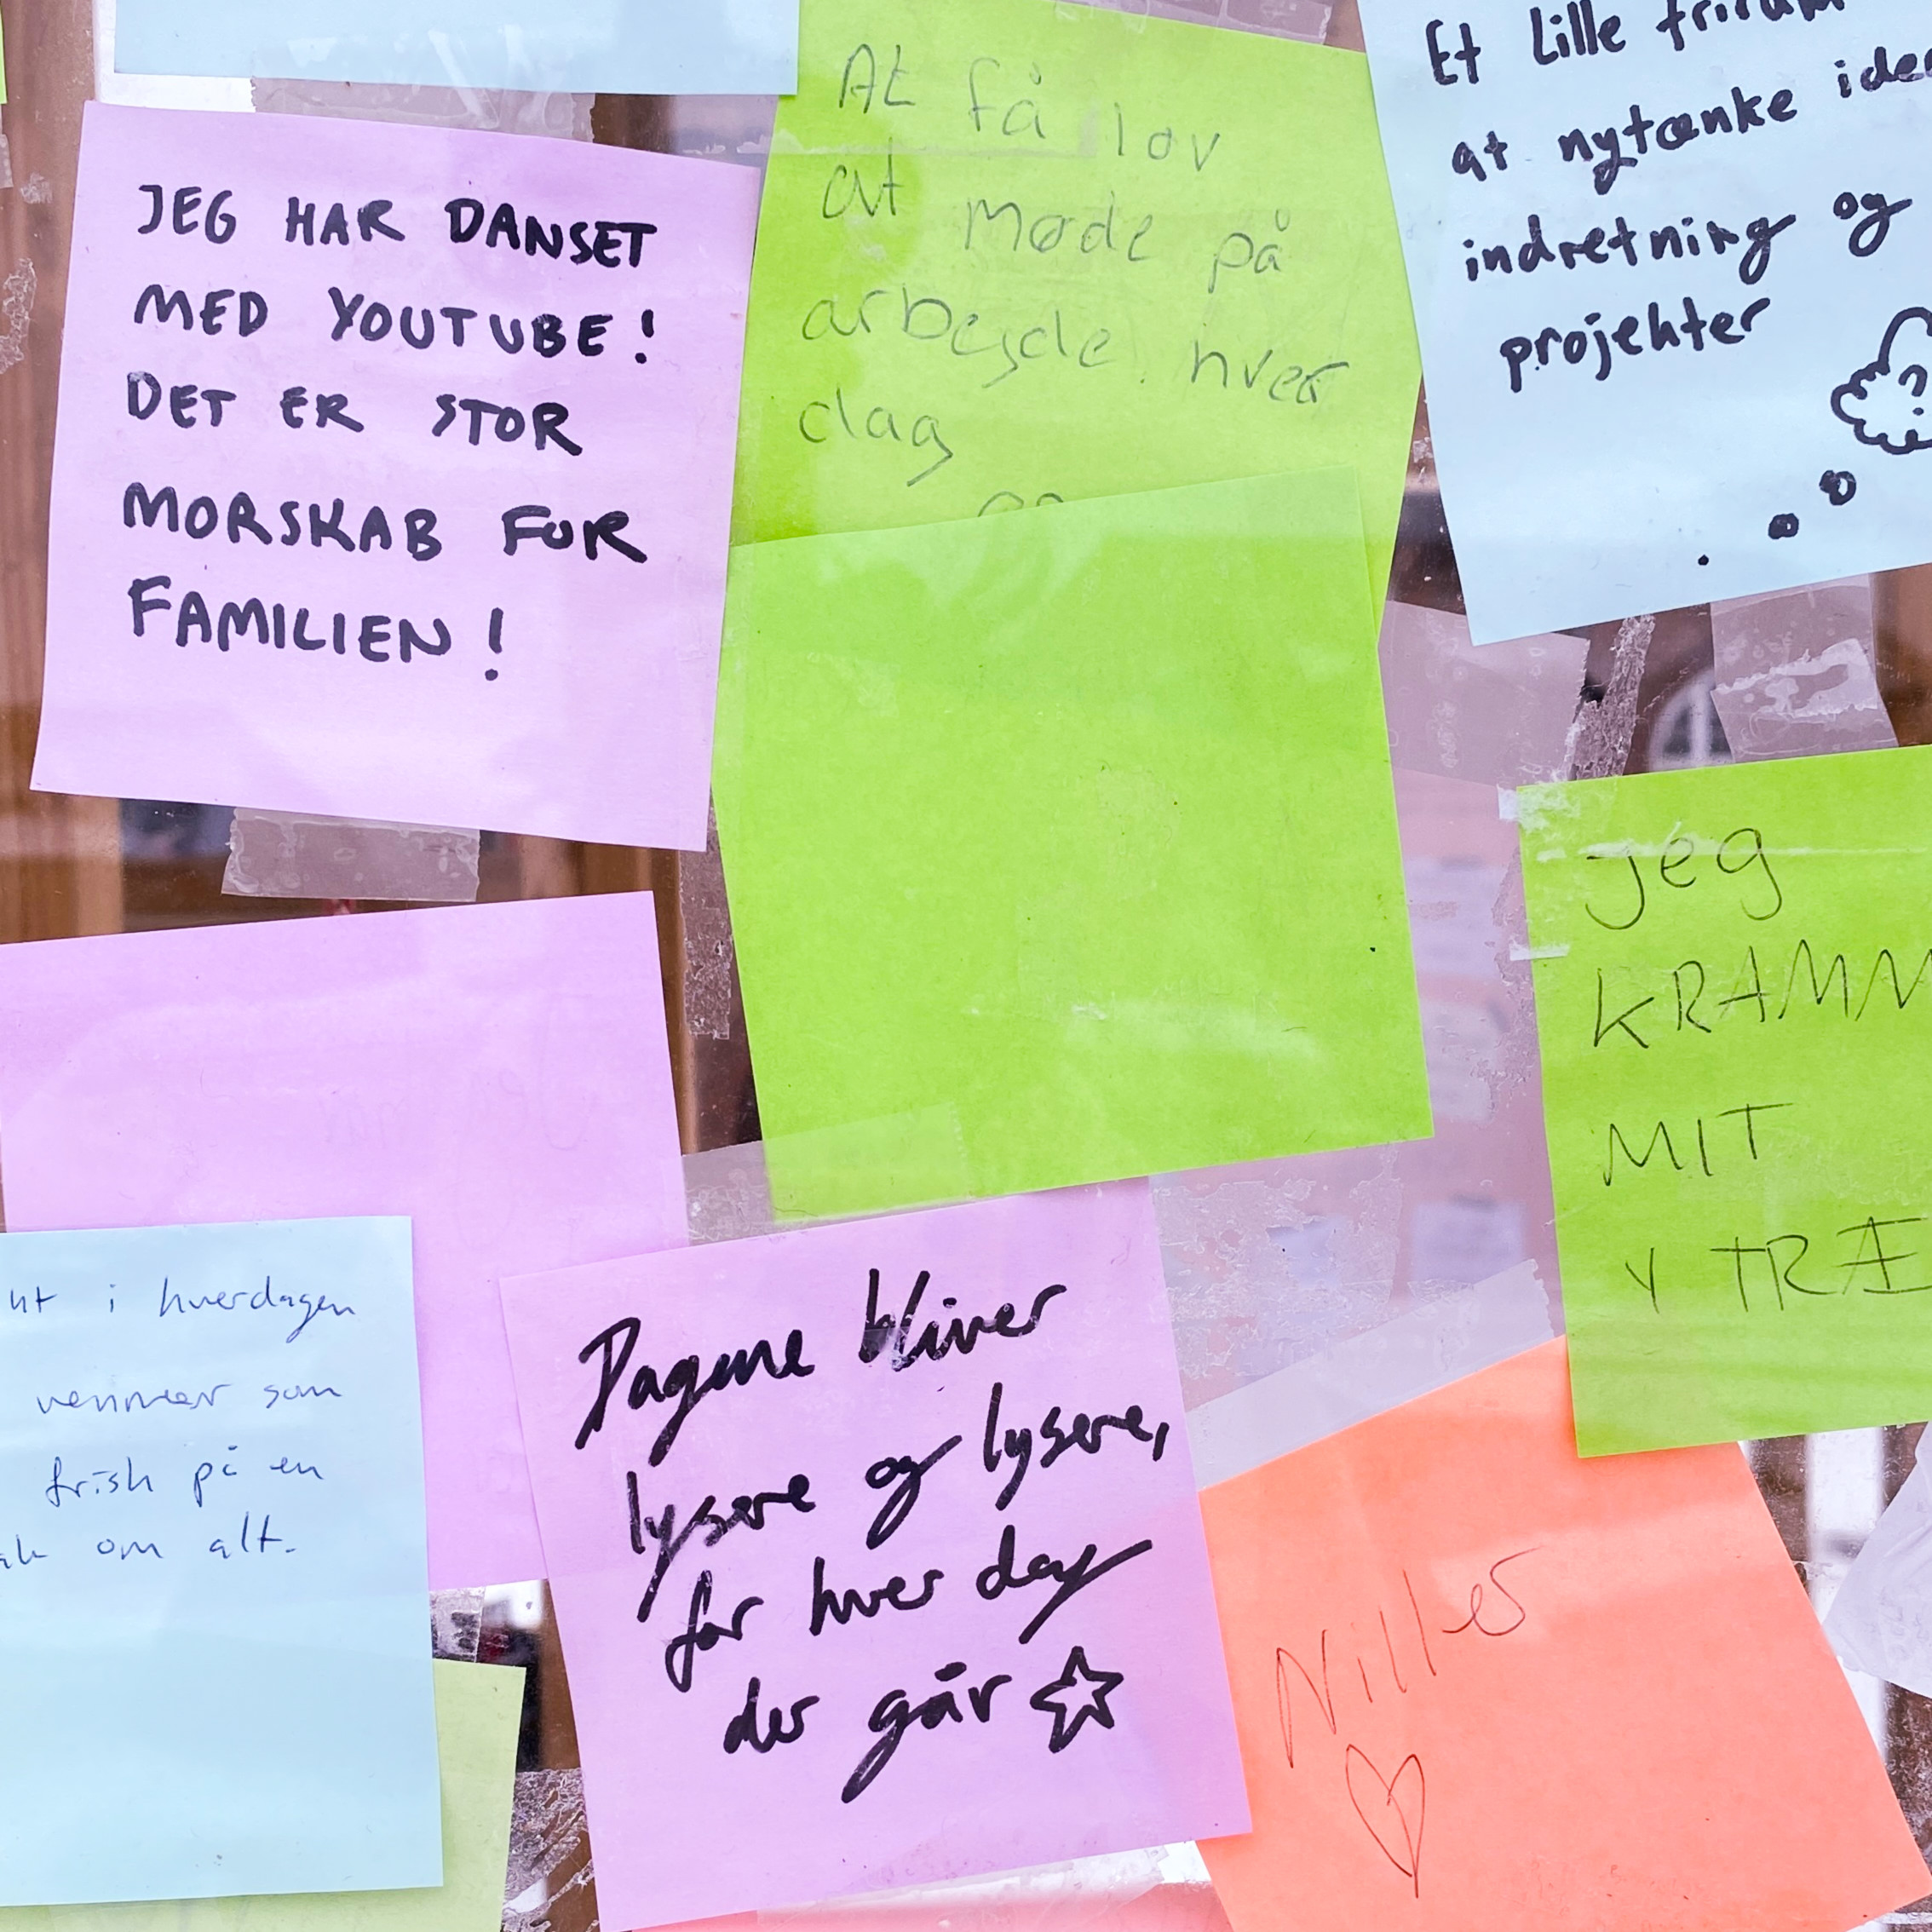 JEG HAR DANSET
MED YOUTUBE!
DET ER STOR
MORSKAB FOR
FAMILIEN!
At få lov
at møde på
arbejde hver
dag
Et lille frirum
at nytænke
indretning og
projekter
jeg
KRAMM
MIT
Y TRÆ
i hverdagen
venner som
frisk på en
om alt.
Dagene bliver
lysere og lysere,
for hver dag
der går
Niller